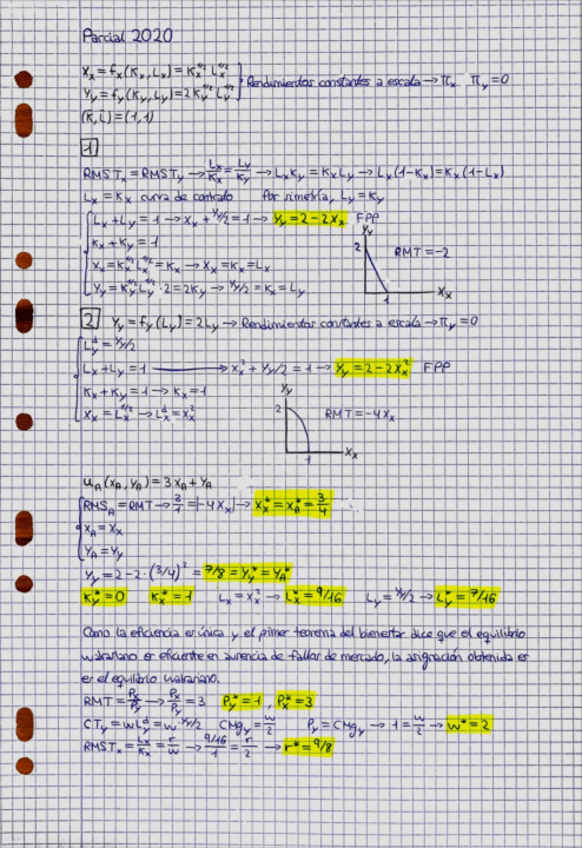 Parcial 2020
Xx = fx(Kx, Lx) = Kx^1/2 Lx^1/2
Yy = fy(Ky, Ly) = 2Ky^1/2 Ly^1/2
Rendimientos constantes a escala → πx πy = 0
(K̄, L̄) = (1,1)
1
RMSTx = RMSTy → Lx/Kx = Ly/Ky → LxKy = KxLy → Lx(1-Kx) = Kx(1-Lx)
Lx = Kx curva de contrato Por simetría, Ly = Ky
Lx + Ly = 1 → Xx + Yy/2 = 1 → Yy = 2-2Xx FPP
Kx + Ky = 1
Xx = Kx^1/2 Lx^1/2 = Kx → Xx = Kx = Lx
Yy = Ky^1/2 Ly^1/2 · 2 = 2Ky → Yy/2 = Kx = Ly
Yy
2
RMT = -2
1
Xx
2 Yy = fy(Ly) = 2Ly → Rendimientos constantes a escala → πy = 0
Ly^d = Yy/2
Lx + Ly = 1 → Xx² + Yy/2 = 1 → Yy = 2-2Xx² FPP
Kx + Ky = 1 → Kx = 1
Xx = Lx^1/2 → Lx^d = Xx²
Yy
2
RMT = -4Xx
1
Xx
uA(xA, yA) = 3xA + yA
RMSA = RMT → 3/1 = |-4Xx| → Xx* = xA* = 3/4
xA = Xx
yA = Yy
Yy = 2-2·(3/4)² = 7/8 = Yy* = YA*
Ky* = 0 Kx* = 1 Lx = Xx² → Lx* = 9/16 Ly = Yy/2 → Ly* = 7/16
Como la eficiencia es única y el primer teorema del bienestar dice que el equilibrio
walrasiano es eficiente en ausencia de fallos de mercado, la asignación obtenida es
es el equilibrio walrasiano.
RMT = Px/Py → Px/Py = 3 Py* = 1, Px* = 3
CTy = wLy^d = w·Yy/2 CMgy = w/2 Py = CMgy → 1 = w/2 → w* = 2
RMSTx = Lx/Kx = r/w → 9/16/1 = r/2 → r* = 9/8